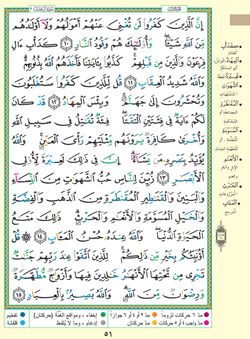 إِنَّ ٱلَّذِينَ كَفَرُوا۟ لَن تُغْنِىَ عَنْهُمْ أَمْوَٰلُهُمْ وَلَآ أَوْلَٰدُهُم
مِّنَ ٱللَّهِ شَيْـًٔا ۖ وَأُو۟لَٰٓئِكَ هُمْ وَقُودُ ٱلنَّارِ ١٠ كَدَأْبِ ءَالِ
فِرْعَوْنَ وَٱلَّذِينَ مِن قَبْلِهِمْ ۚ كَذَّبُوا۟ بِـَٔايَٰتِنَا فَأَخَذَهُمُ ٱللَّهُ بِذُنُوبِهِمْ ۗ
وَٱللَّهُ شَدِيدُ ٱلْعِقَابِ ١١ قُل لِّلَّذِينَ كَفَرُوا۟ سَتُغْلَبُونَ
وَتُحْشَرُونَ إِلَىٰ جَهَنَّمَ ۚ وَبِئْسَ ٱلْمِهَادُ ١٢ قَدْ كَانَ
لَكُمْ ءَايَةٌ فِى فِئَتَيْنِ ٱلْتَقَتَا ۖ فِئَةٌ تُقَٰتِلُ فِى سَبِيلِ ٱللَّهِ
وَأُخْرَىٰ كَافِرَةٌ يَرَوْنَهُم مِّثْلَيْهِمْ رَأْىَ ٱلْعَيْنِ ۚ وَٱللَّهُ
يُؤَيِّدُ بِنَصْرِهِۦ مَن يَشَآءُ ۗ إِنَّ فِى ذَٰلِكَ لَعِبْرَةً لِّأُو۟لِى
ٱلْأَبْصَٰرِ ١٣ زُيِّنَ لِلنَّاسِ حُبُّ ٱلشَّهَوَٰتِ مِنَ ٱلنِّسَآءِ
وَٱلْبَنِينَ وَٱلْقَنَٰطِيرِ ٱلْمُقَنطَرَةِ مِنَ ٱلذَّهَبِ وَٱلْفِضَّةِ
وَٱلْخَيْلِ ٱلْمُسَوَّمَةِ وَٱلْأَنْعَٰمِ وَٱلْحَرْثِ ۗ ذَٰلِكَ مَتَٰعُ
ٱلْحَيَوٰةِ ٱلدُّنْيَا ۖ وَٱللَّهُ عِندَهُۥ حُسْنُ ٱلْمَـَٔابِ ١٤ قُلْ
أَؤُنَبِّئُكُم بِخَيْرٍ مِّن ذَٰلِكُمْ ۚ لِلَّذِينَ ٱتَّقَوْا۟ عِندَ رَبِّهِمْ جَنَّٰتٌ
تَجْرِى مِن تَحْتِهَا ٱلْأَنْهَٰرُ خَٰلِدِينَ فِيهَا وَأَزْوَٰجٌ مُّطَهَّرَةٌ
وَرِضْوَٰنٌ مِّنَ ٱللَّهِ ۗ وَٱللَّهُ بَصِيرٌۢ بِٱلْعِبَادِ ١٥
٥١